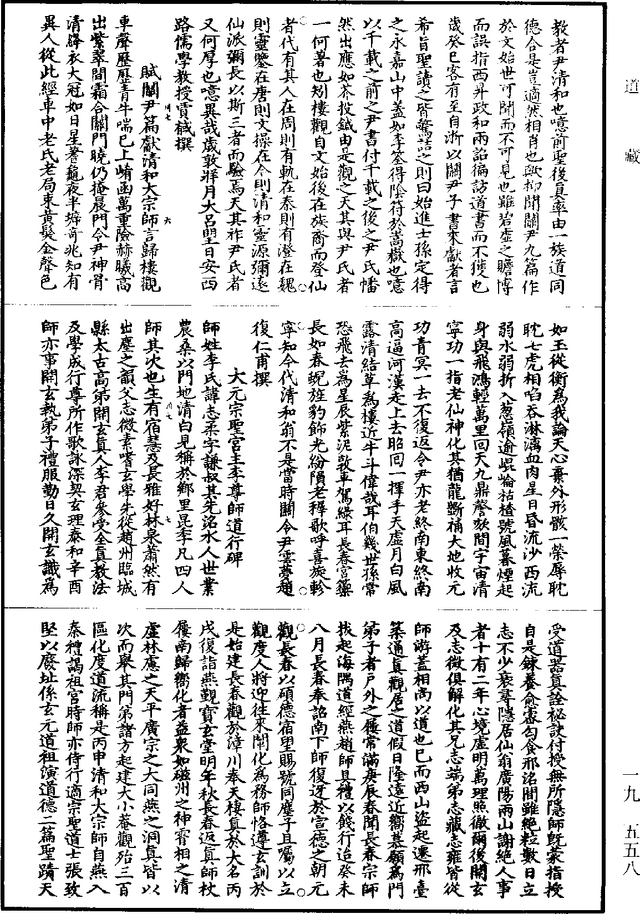 道藏
一九 五五八
教者尹清和也噫前聖後眞率由一族道同
德合是豈適然相肖也歟抑聞關尹九篇作
於文始世可聞而不可見也雖碧虛之贍博
而誤指西昇政和兩詔徧訪道書而不獲也
歲癸巳客有至自浙以關尹子書來獻者言
希旨聖讀之皆驚詰之則曰始進士孫定得
之永嘉山中蓋如李筌得陰符於嵩嶽也噫
以千載之前之尹書付千載之後之尹氏憣
然出應如芥投鍼由是觀之天其與尹氏者
一何厚也矧樓觀自文始後在族裔而登仙
者代有其人在周則有軌在秦則有澄在魏
則靈鑒在唐則文操在今則清和靈源彌遠
仙派彌長以斯三者而驗焉天其祚尹氏者
又何厚也噫異哉歲敦牂月大呂朢日安西
路儒學教授賈戫撰
賦關尹篇獻清和大宗師言歸樓觀
車聲歷歷青牛喘巳上崤函萬重險赫曦高
出紫翠間霜合關門曉仍掩晨門令尹神骨
清絳衣大冠如日星蓍龜夜半辨奇兆知有
異人從此經車中老氏老局束黃髮金聲色
如玉從衡爲我論天心棄外形骸一榮辱耽
耽七虎相啗吞淋漓血肉星日昏流沙西流
弱水弱折入葱嶺逾崐崘祜楂號風暮煙起
身與飛鴻輕萬里回天九鼎聲欬間宇宙清
寧功一指老仙神化其猶龍斷稿大地收元
功青冥一去不復返令尹亦老終南東終南
高逼河漢走上去昭回一揮手天虛月白風
露清結草爲樓近牛斗偉哉耳伯幾世孫常
恐飛去爲星辰紫泥敦車駕緩耳長春宮籞
長如春貌旌豹飾光紛隕老稚歌呼喜旋軫
寧知今代清和翁不是當時關令尹雲夢趙
復仁甫撰
大元宗聖宮主李尊師道行碑
師姓李氏諱志柔字謙叔其先洺水人世業
農桑以門地清白見稱於鄉里昆季凡四人
師其次也生有宿慧及長雅好林泉蕭然有
出塵之韻父志微素嗜玄學先從趙州臨城
縣太古高弟開玄眞人李君參受全眞教法
及學成行尊所作歌詠深契玄理泰和辛酉
師亦事開玄執弟子禮服勤日久開玄識爲
受道器眞詮祕訣付授無所隱師旣蒙指授
自是鍊養愈密勾食邢洺間雖絕粒數日立
志不少衰尋隱居仙翁廣陽兩山謝絕人事
者十有二年心境虛明萬理照徹爾後開玄
及志微俱解化其兄志端弟志藏志雍皆從
師游蓋相尚以道也巳而西山盜起遷邢臺
築通眞觀居之道假日隆遠近嚮慕願爲門
弟子者戶外之屨常滿庚辰春聞長春宗師
拔起海隅道經燕趙師具禮以餞行迨癸未
八月長春奉詔南下師復迓於宣德之朝元
觀長春以碩德宿望賜號同塵子且囑以立
觀度人將迎往來闡化爲務師恪遵玄訓於
是始建長春觀於漳川奉天棲眞於大名丙
戌復詣燕觀寶玄堂明年秋長春返眞師秋
屨南歸嚮化者益衆如磁州之神霄相之清
虛林慮之天平廣宗之大同燕之洞眞皆以
次而舉其門弟諸方起建大小菴觀殆三百
區化度道流稱是丙申清和大宗師自燕入
秦禮謁祖宮時師亦侍行適宗聖道士張致
堅以廢址係玄元道祖演道德二篇聖蹟天